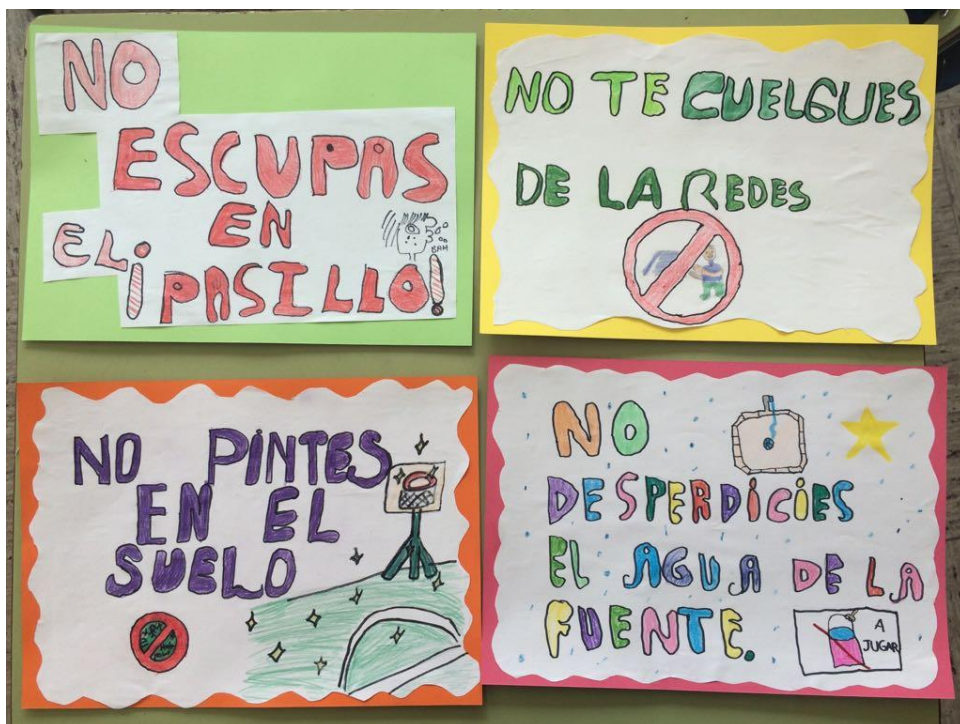 NO
ESCUPAS
EN
EL
¡PASILLO!
BAM
NO TE CUELGUES
DE LA REDES
NO PINTES
EN EL
SUELO
NO
DESPERDICIES
EL AGUA DE LA
FUENTE.
A
JUGAR